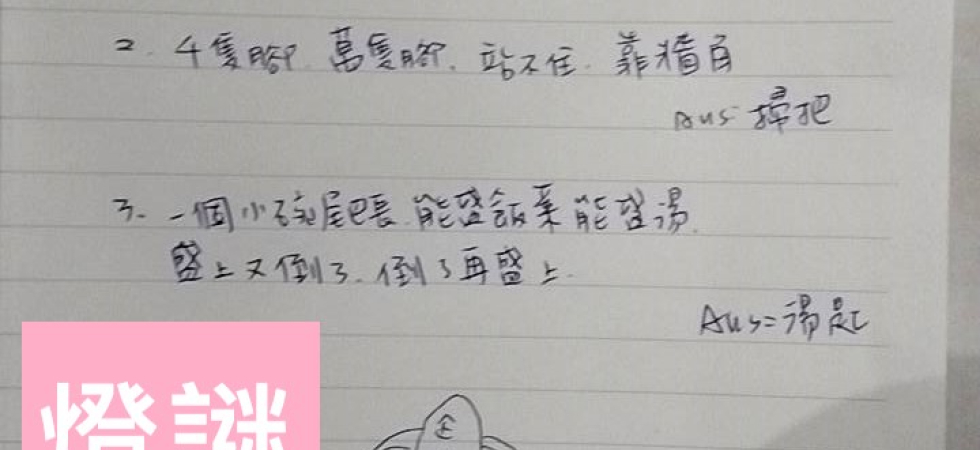 2. 千隻腳、萬隻腳、站不住、靠牆角
Aus 掃把
3. 一個小碗尾巴長、能盛飯菜能盛湯
盛上又倒了、倒了再盛上.
Aus=湯匙
燈謎